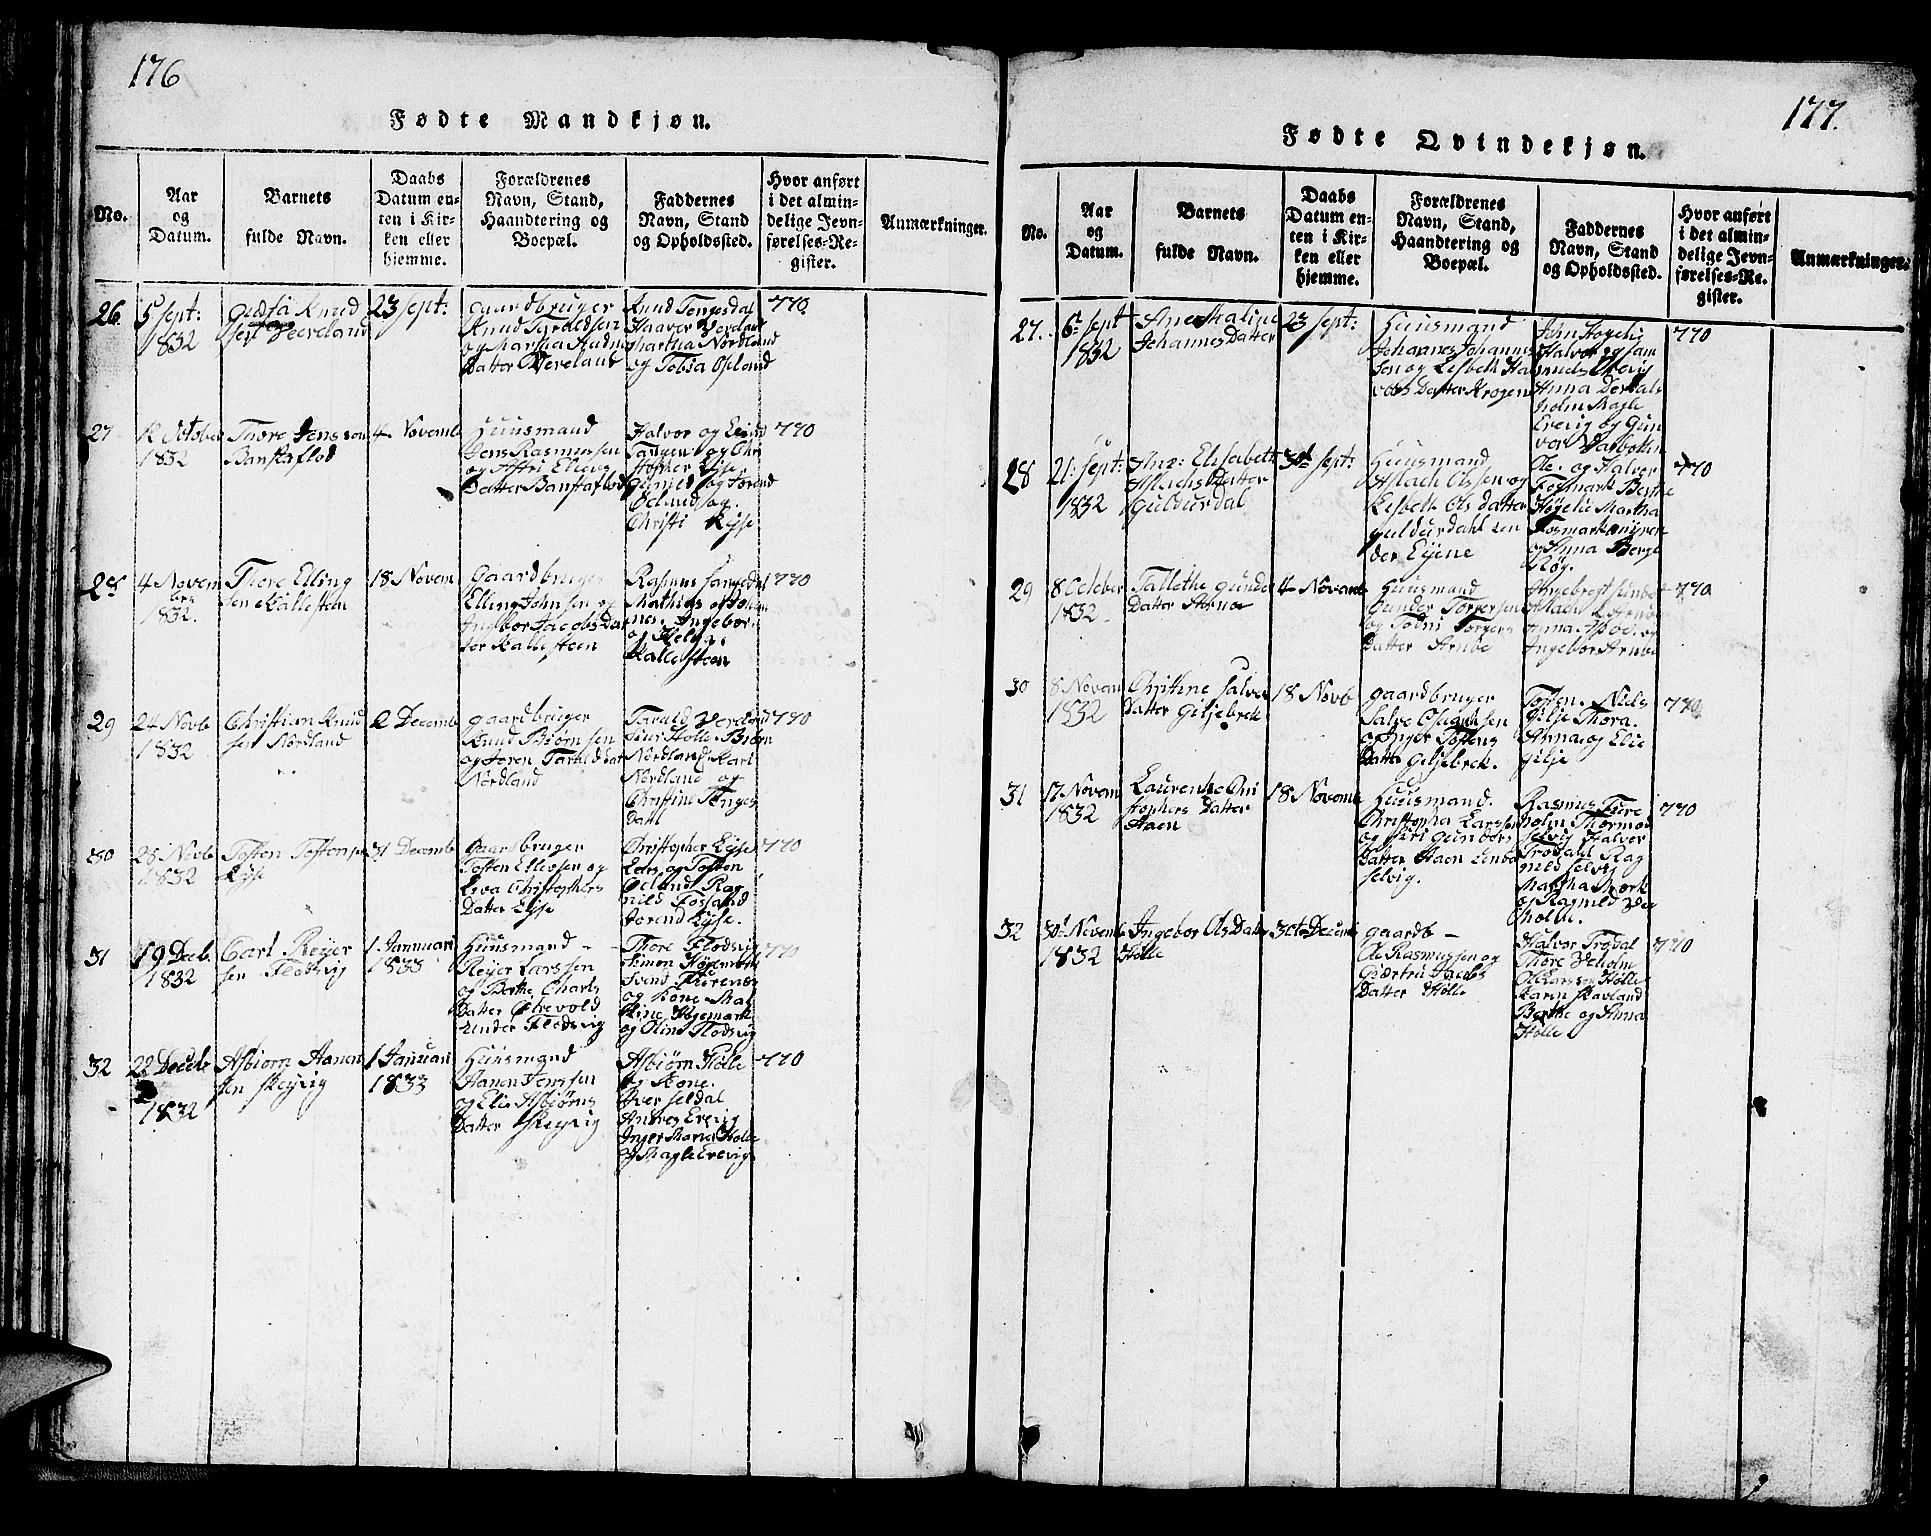 176
Fødte Mandkjøn.
No.
Aar
og
Datum.
Barnets
fulde Navn.
Daabs
Datum en-
ten i Kir-
ken eller
hjemme.
Forældrenes
Navn, Stand,
Haandtering og
Boepæl.
Faddernes
Navn, Stand
og Opholdssted.
Hvor anført
i det almin-
delige Jevn-
førelses-Re-
gister.
Anmærkninger.
26
5 Sept:
1832
Knud
sen
23 Sept:
gaardbruger
Knud
og Martha Knuds
Datter Vereland
Knud Tengesdal
Haaver Vereland
Martha Nordland
og Tobia Osland
770
27
12 October
1832
Thore Jenssen
Banstaflod
4 Novemb
Huusmand
Jens Rasmussen
og Astri Ellens
Datter Banstaflod
Halvor og Eivind
Tangen og Chri
stopher Eyse
Gunild og Sørend
Øelund og
Christi Eyse
770
28
4 Novem
ber
1832
Thore Elling
sen Kallesteen
18 Novem
Gaardbruger
Elling Johnsen og
Ingbor Jacobs Dat
ter Kallesteen
Rasmus
Mathias
Ingebor
og Helga
Kallesteen
770
29
24 Novb
1832
Christian Knud
sen Nordland
2 Decemb
gaardbruger
Knud Biørnsen
og Søren Taralds Dat
Nordland
Tarald Vereland
Siur Hølle Biørn
Nordland Karl
Nordland og
Christine Tenges
Dahl
770
30
28 Novb
1832
Tosten Tostensen
Eyse
31 Decemb
Gaardbruger
Tosten Ellevsen og
Liva Christophers
Datter Eyse
Christopher Eyse
Lars og Tosten
Øelund Rag
nild Fossand
Sorend Eyse.
770
31
19 Decb.
1832
Carl Reyer
sen Flodsvig
1 Januari
1833
Huusmand
Reyer Larssen
og Berthe Charls
Datter Østevold
under Flodsvig
Thore Flodsvig
Simon Høgemark
Svend
og Kone Mal
ene Høgemark
og Oline Flodsvig
770
32
22 Decebr
1832
Asbiørn Aanen
sen Skeyvig
1 Januari
1833
Huusmand
Aanen Jenssen
og Elie Asbiørns
Datter Skeyvig
Asbiørn Hølle
og Kone.
Iver Seldal
Andres Erevig
Inger Maria Hølle
og Magle Erevig
770
177.
Fødte Qvindekjøn.
No.
Aar
og
Datum.
Barnets
fulde Navn.
Daabs
Datum en-
ten i Kir-
ken eller
hjemme.
Forældrenes
Navn, Stand,
Haandtering og
Boepæl.
Faddernes
Navn, Stand
og Opholdssted.
Hvor anført
i det almin-
delige Jevn-
førelses-Re-
gister.
Anmærkninger.
27.
6 Sept
1832
Ane Maline
Johannes Datter
23 Sept:
Huusmand
Johannes Johannes
sen og Lisbeth Hal
vors Datter Krogen
John Høgelie
Halvor og Sam
uel Erevig
Anna
holm Magle
Erevig og Gun
vor
770
28
21 Sept:
1832
Ane Elisabeth
Aslachs Datter
Guldurdal
30 Sept:
Huusmand
Aslach Olssen og
Lisbeth Ols Datter
guldurdahl un
der Eyene
Ole og Halvor
Fosmark Berthe
Høgelie Martha
Fosmark
og Anna Berge
770
29
8 October
1832
Tallethe Gunder
Datter Arnøe
4 Novemb
Huusmand
Gunder Torgersen
og Todni Torgers
Datter Arnøe
Ingebregt
Aslach Arnøe
Anna og
Ingebor Arnøe
770
30
8 Novem
1832
Christine Salve
Datter Giljebrek
18 Novb
gaardbruger
Salve Osmundsen
og Inger Tostens
Datter Giljebrek.
Tosten. Niels
Gilje Thora.
Anna og Elie
Gilje
770
31
17 Novem
1832
Laurentze Chri
stophers Datter
Haaen
18 Novemb
Huusmand.
Christopher Larssen
og Siri Gunders
Datter Haaen under
Selvig.
Rasmus Ture
holm Thormod
Selvig Halvor
Trodahl Rag
nild Selvig
Martha Mørk
og Ragnild Ve
holm.
770
32
30 Novemb
1832
Ingebor Ols Datter
Hølle
31te Decemb
gaardb
Ole Rasmussen og
Giertru Jacobs
Datter Hølle
Halvor Trodal
Thore Veholm
Ole Larssen Hølle
Karen Skavland
Berthe og Anna
Hølle
770